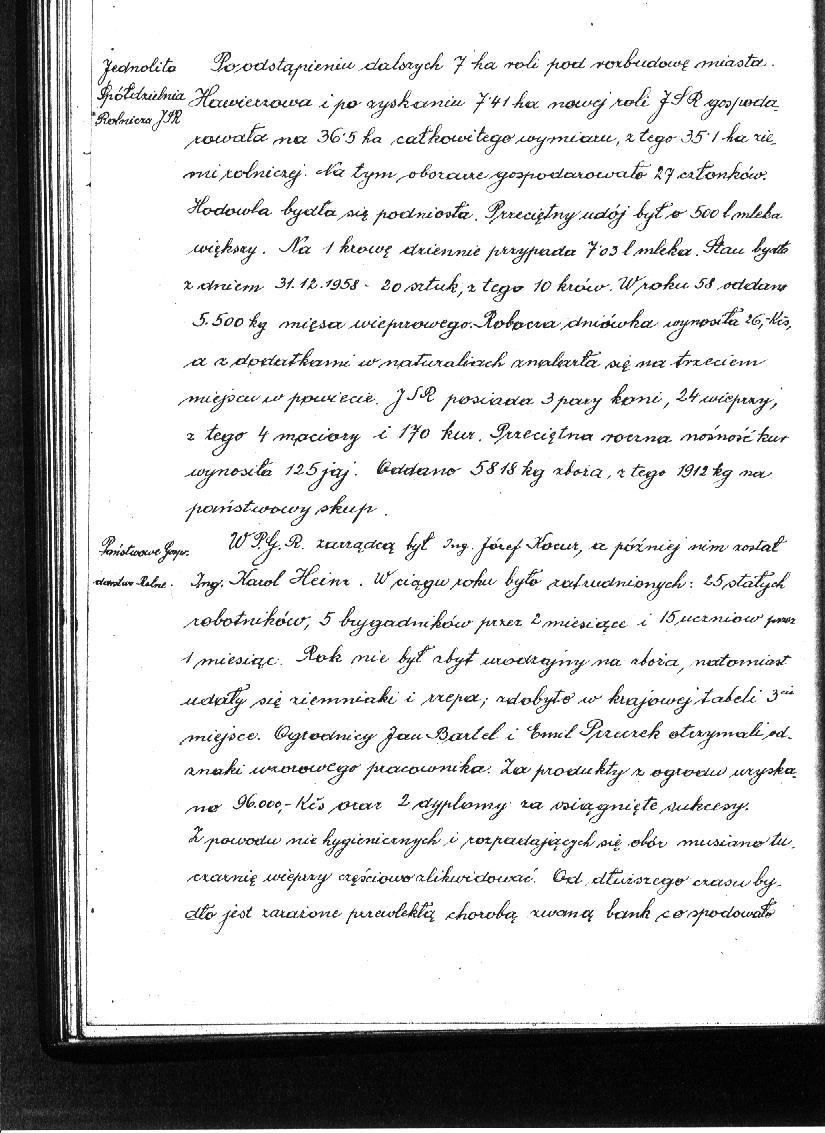 Jednolita
Spółdzielnia
Rolnicza JSR
Po odstąpieniu dalszych 7 ha roli pod rozbudowę miasta
Hawierzowa i po zyskaniu 7·41 ha nowej roli JSR gospoda-
rowała na 36·5 ha całkowitego wymiaru, z tego 35·1 ha zie-
mi rolniczej. Na tym obszarze gospodarowało 27 członków.
Hodowla bydła się podniosła. Przeciętny udój był o 500 l mleka
większy. Na 1 krowę dziennie przypada 7·03 l mleka. Stan bydła
z dniem 31.12.1958 - 20 sztuk, z tego 10 krów. W roku 58 oddano
5.500 kg mięsa wieprzowego. Robocza dniówka wynosiła 26,- Kčs,
a z dodatkami w naturaliach znalazła się na trzeciem
miejscu w powiecie. JSR posiada 3 pary koni, 24 wieprzy,
z tego 4 maciory i 170 kur. Przeciętna roczna nośność kur
wynosiła 125 jaj. Oddano 5818 kg zboża, z tego 1912 kg na
państwowy skup.
Państwowe Gosp.
darstwo Rolne.
W P.G.R. zarządcą był Ing. Józef Kocur, a później nim został
Ing. Karol Heinz. W ciągu roku było zatrudnionych: 25 stałych
robotników, 5 brygadników przez 2 miesiące i 15 uczniów przez
1 miesiąc. Rok nie był zbyt urodzajny na zboża, natomiast
udały się ziemniaki i rzepa; zdobyto w krajowej tabeli 3cie
miejsce. Ogrodnicy Jan Bartel i Emil Pzurek otrzymali od-
znaki wzorowego pracownika. Za produkty z ogrodu uzyska-
no 96.000,- Kčs oraz 2 dyplomy za osiągnięte sukcesy.
Z powodu nie hygienicznych i rozpadających się obór musiano tu-
czarnię wieprzy częściowo zlikwidować. Od dłuższego czasu by-
dło jest zarażone przewlekłą chorobą zwaną bank co spodowało